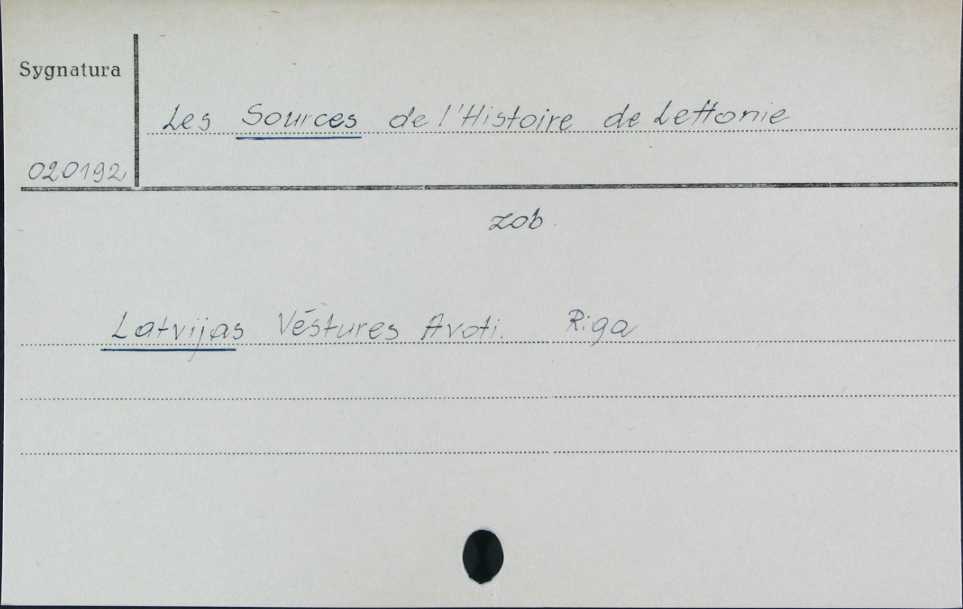 Sygnatura
Les Sources de l'Histoire de Lettonie
020192
zob.
Latvijas Vēstures Avoti. Riga